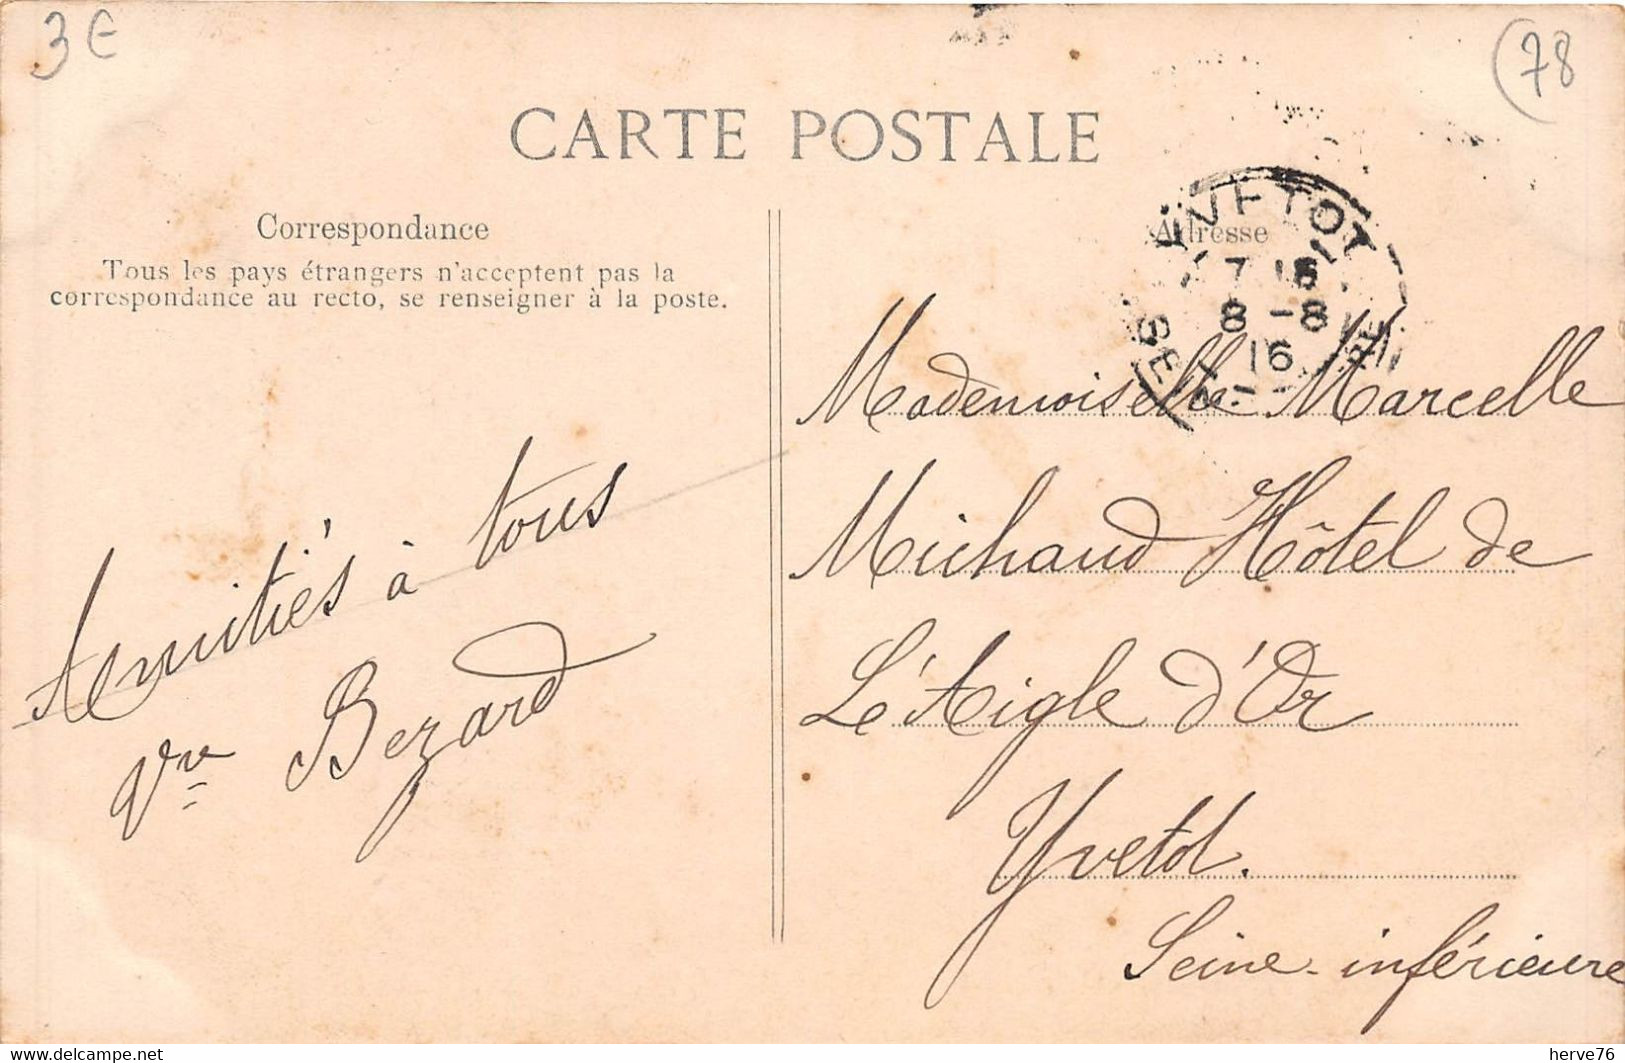 3 €
(78
CARTE POSTALE
Correspondance
Tous les pays étrangers n'acceptent pas la
correspondance au recto, se renseigner à la poste.
Adresse
YVETOT
8 -8
16
Amitiés à tous
Vve Bezard
Mademoiselle Marcelle
Michaud Hôtel de
L'Aigle d'Or
Yvetot.
Seine-inférieure
www.delcampe.net
herve76